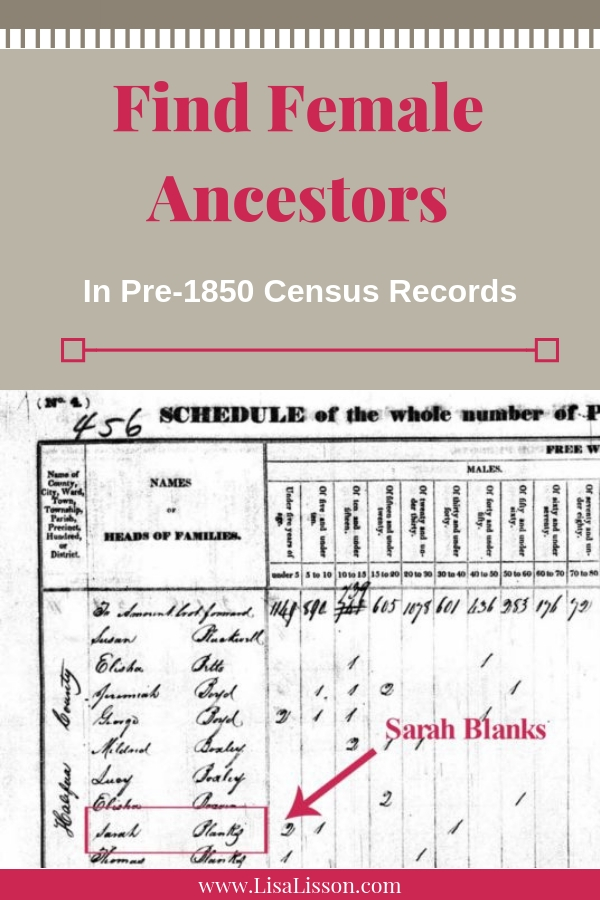 Find Female
Ancestors
In Pre-1850 Census Records
(No. 4.)
456
SCHEDULE of the whole number of P
FREE W
MALES.
Name of
County,
City, Ward,
Town,
Township,
Parish,
Precinct,
Hundred,
or
District.
NAMES
OF
HEADS OF FAMILIES.
Under five years of age.
Of five and under ten.
Of ten and under fifteen.
Of fifteen and under twenty.
Of twenty and under thirty.
Of thirty and under forty.
Of forty and under fifty.
Of fifty and under sixty.
Of sixty and under seventy.
Of seventy and under eighty.
under 5 5 to 10 10 to 15 15 to 20 20 to 30 30 to 40 40 to 50 50 to 60 60 to 70 70 to 80
To Amount brot forward 605 1078 601 436 176 72
Susan
Elisha 1 1
Jeremiah Boyd 1 1 2 1
George Boyd 2 1 1 1
Mildred 2 1 1
Lucy
Elisha 2 1
Sarah Blanks 2 1 1
Thomas Blanks 1 1
Halifax County
Sarah Blanks
www.LisaLisson.com